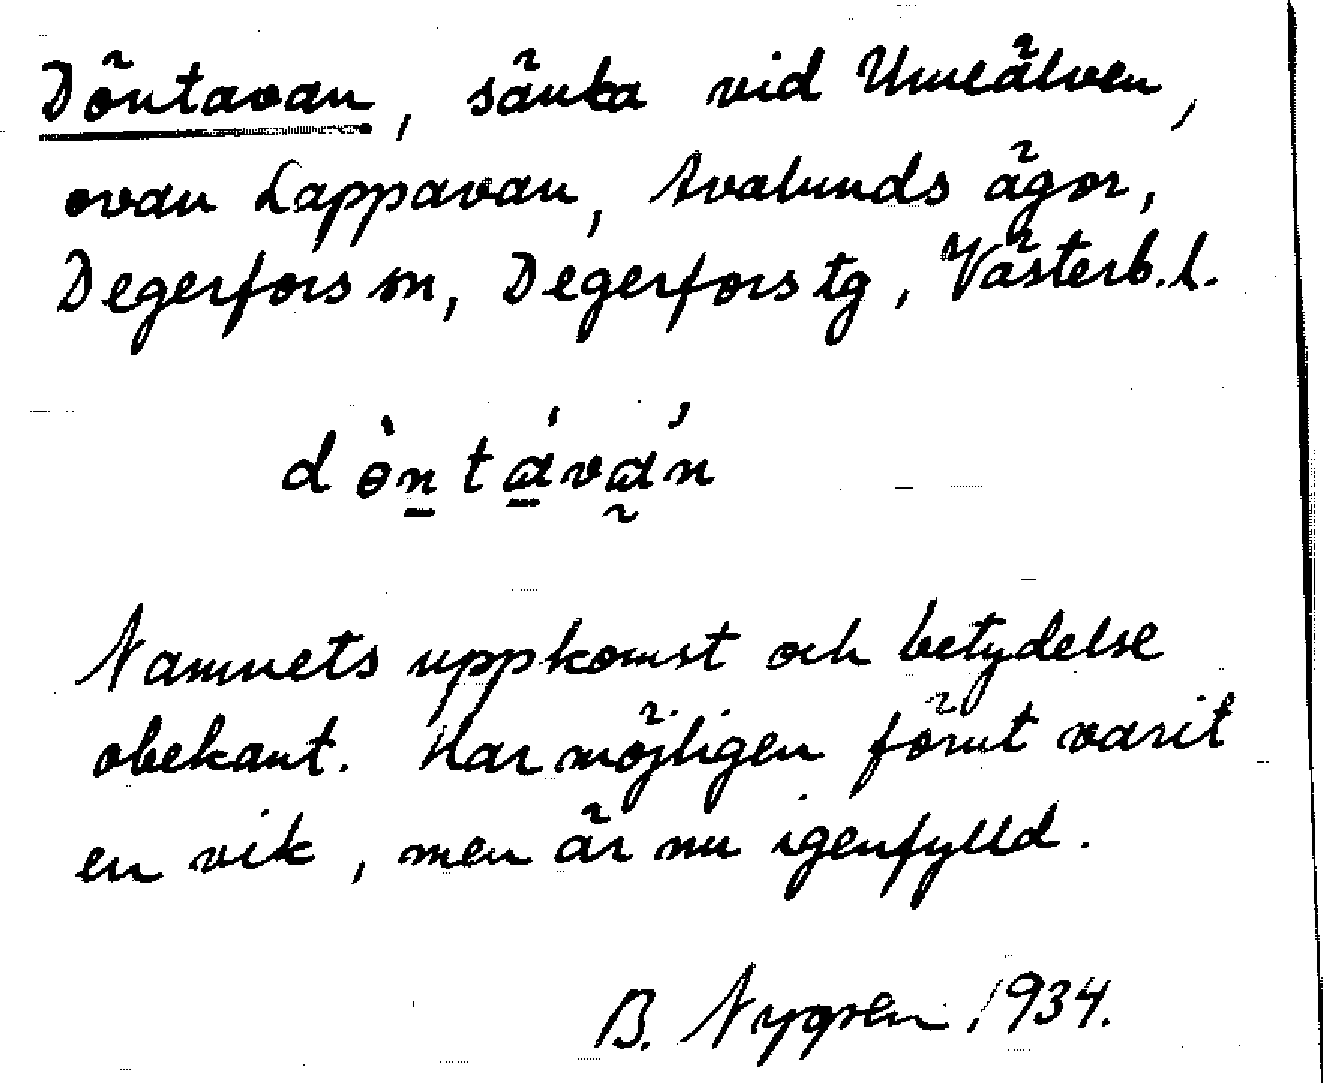 Döntavan, sänka vid Umeälven,
ovan Lappavan, Avalunds ägor,
Degerfors sn, Degerfors tg, Västerb. l.
dòn̲tá̲vá̰n
Namnets uppkomst och betydelse
obekant. Har möjligen förut varit
en vik, men är nu igenfylld.
B. Nygren 1934.